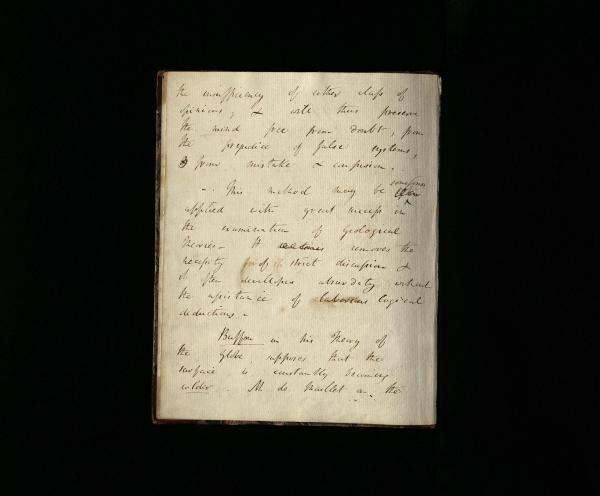 the insufficiency of either class of
opinions, & will thus preserve
the mind free from doubt, from
the prejudice of false systems,
& from mistake & confusion. -
sometimes
- This method may be
applied with great success in
the examination of geological
theories - It removes the
necessity of strict discussion &
it often developes absurdity without
the assistance of laborious logical
deductions. -
Buffon in his Theory of
the Globe supposes that the
surface is constantly becoming
colder. M de Maillet on the